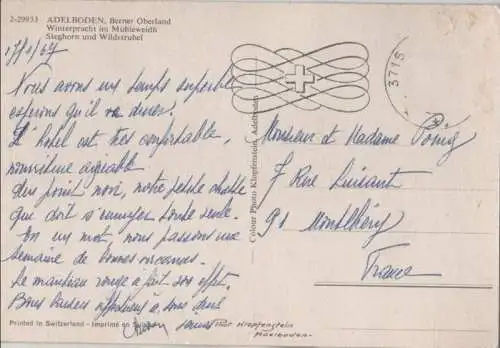 2-29953 ADELBODEN, Berner Oberland
Winterpracht im Mühleweidli
Steghorn und Wildstrubel
Nous avons un temps superbe
espérons qu'il va durer.
L'hôtel est très confortable,
nourriture agréable
Un point noir, notre petite chatte
que doit s'ennuyer toute seule.
En un mot, nous passons une
semaine de bonnes vacances.
Le manteau rouge a fait son effet.
Bons baisers affectueux à tous deux
Printed in Switzerland - Imprimé en Suisse
Colour Photo Klopfenstein, Adelboden
3715
Monsieur et Madame
7 Rue
91 Montlhéry
France
Phot Klopfenstein
Adelboden-